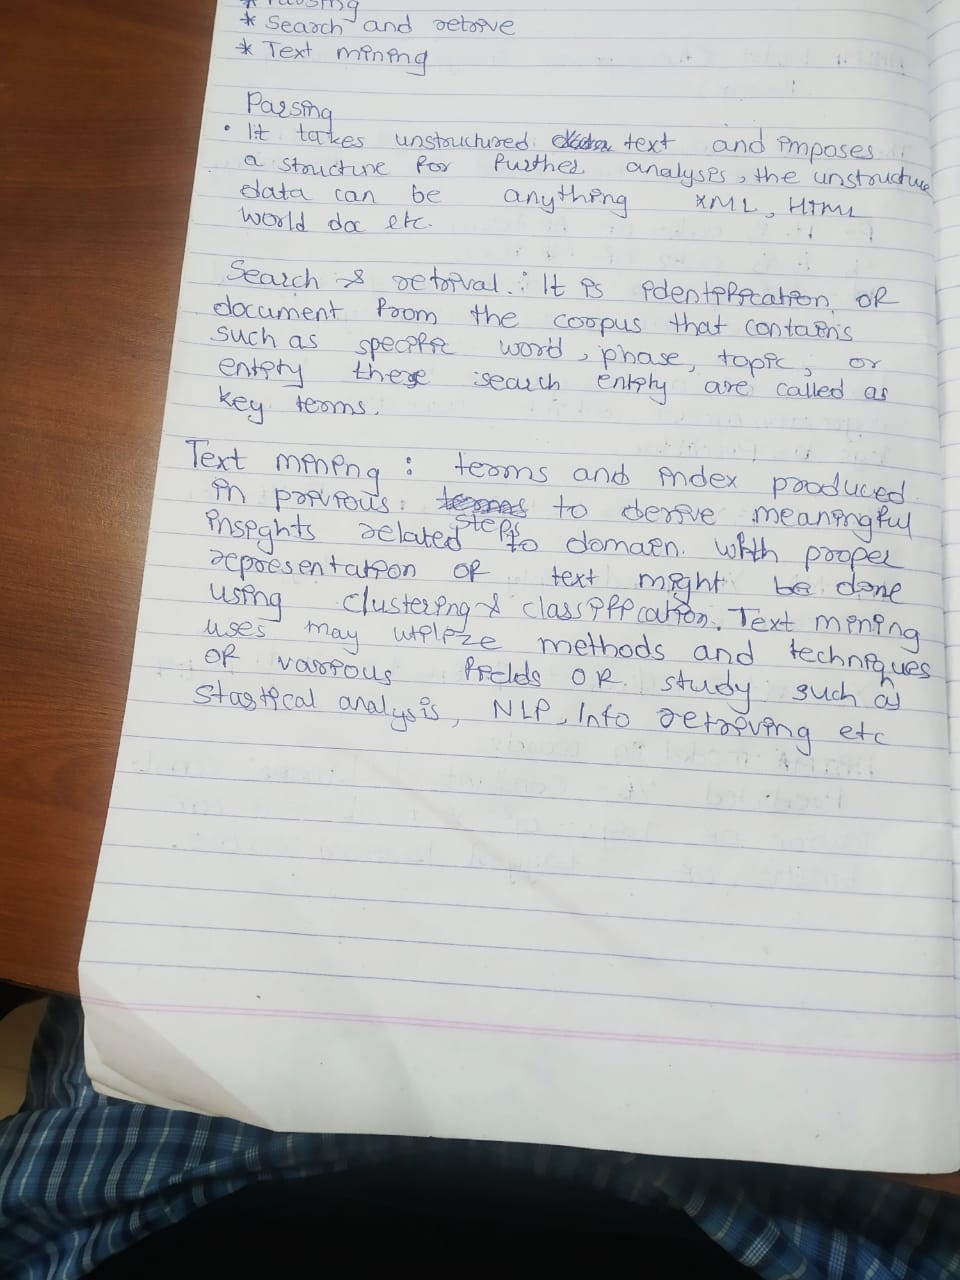 * Parsing
* Search and retrive
* Text mining
Parsing
• It takes unstructured text and imposes
a structure for further analysis, the unstructure
data can be anything XML, HTML
World doc etc.
Search & retrival : It is identification OF
document from the corpus that contains
such as specific word, phase, topic, or
entity these search entity are called as
key terms.
Text mining : terms and index produced
in privious steps to derive meaningful
insights related to domain. With proper
representation OF text might be done
using clustering & classification. Text mining
uses may utilize methods and techniques
OF various fields OF study such as
Stastical analysis, NLP, Info retriving etc